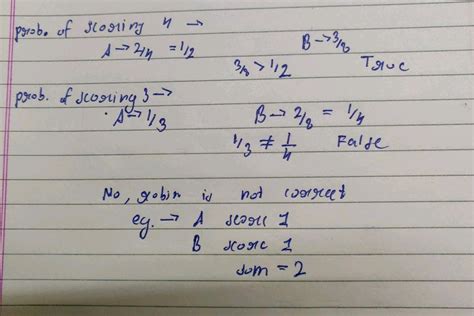 prob. of scoring 4 →
A → 2/4 = 1/2 B → 3/8
3/8 > 1/2 True
prob. of scoring 3 →
A → 1/3 B → 2/8 = 1/4
1/3 ≠ 1/4 False
No, robin is not correct
eg. → A score 1
B score 1
sum = 2